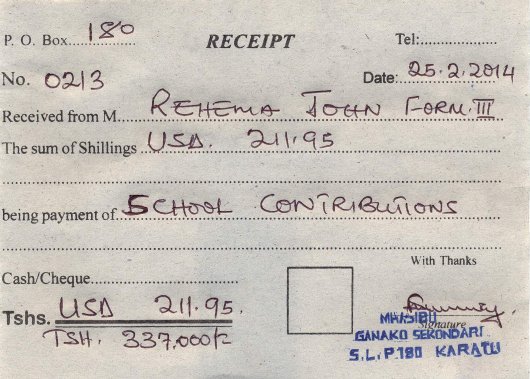 P. O. Box 180 RECEIPT Tel:
No. 0213 Date: 25.2.2014
Received from M REHEMA JOHN FORM III
The sum of Shillings USD. 211.95
being payment of SCHOOL CONTRIBUTIONS
With Thanks
Cash/Cheque
Tshs. USD 211.95.
TSH. 337,000/=
Signature
MHASIBU
GANAKO SEKONDARI
S.L.P.180 KARATU